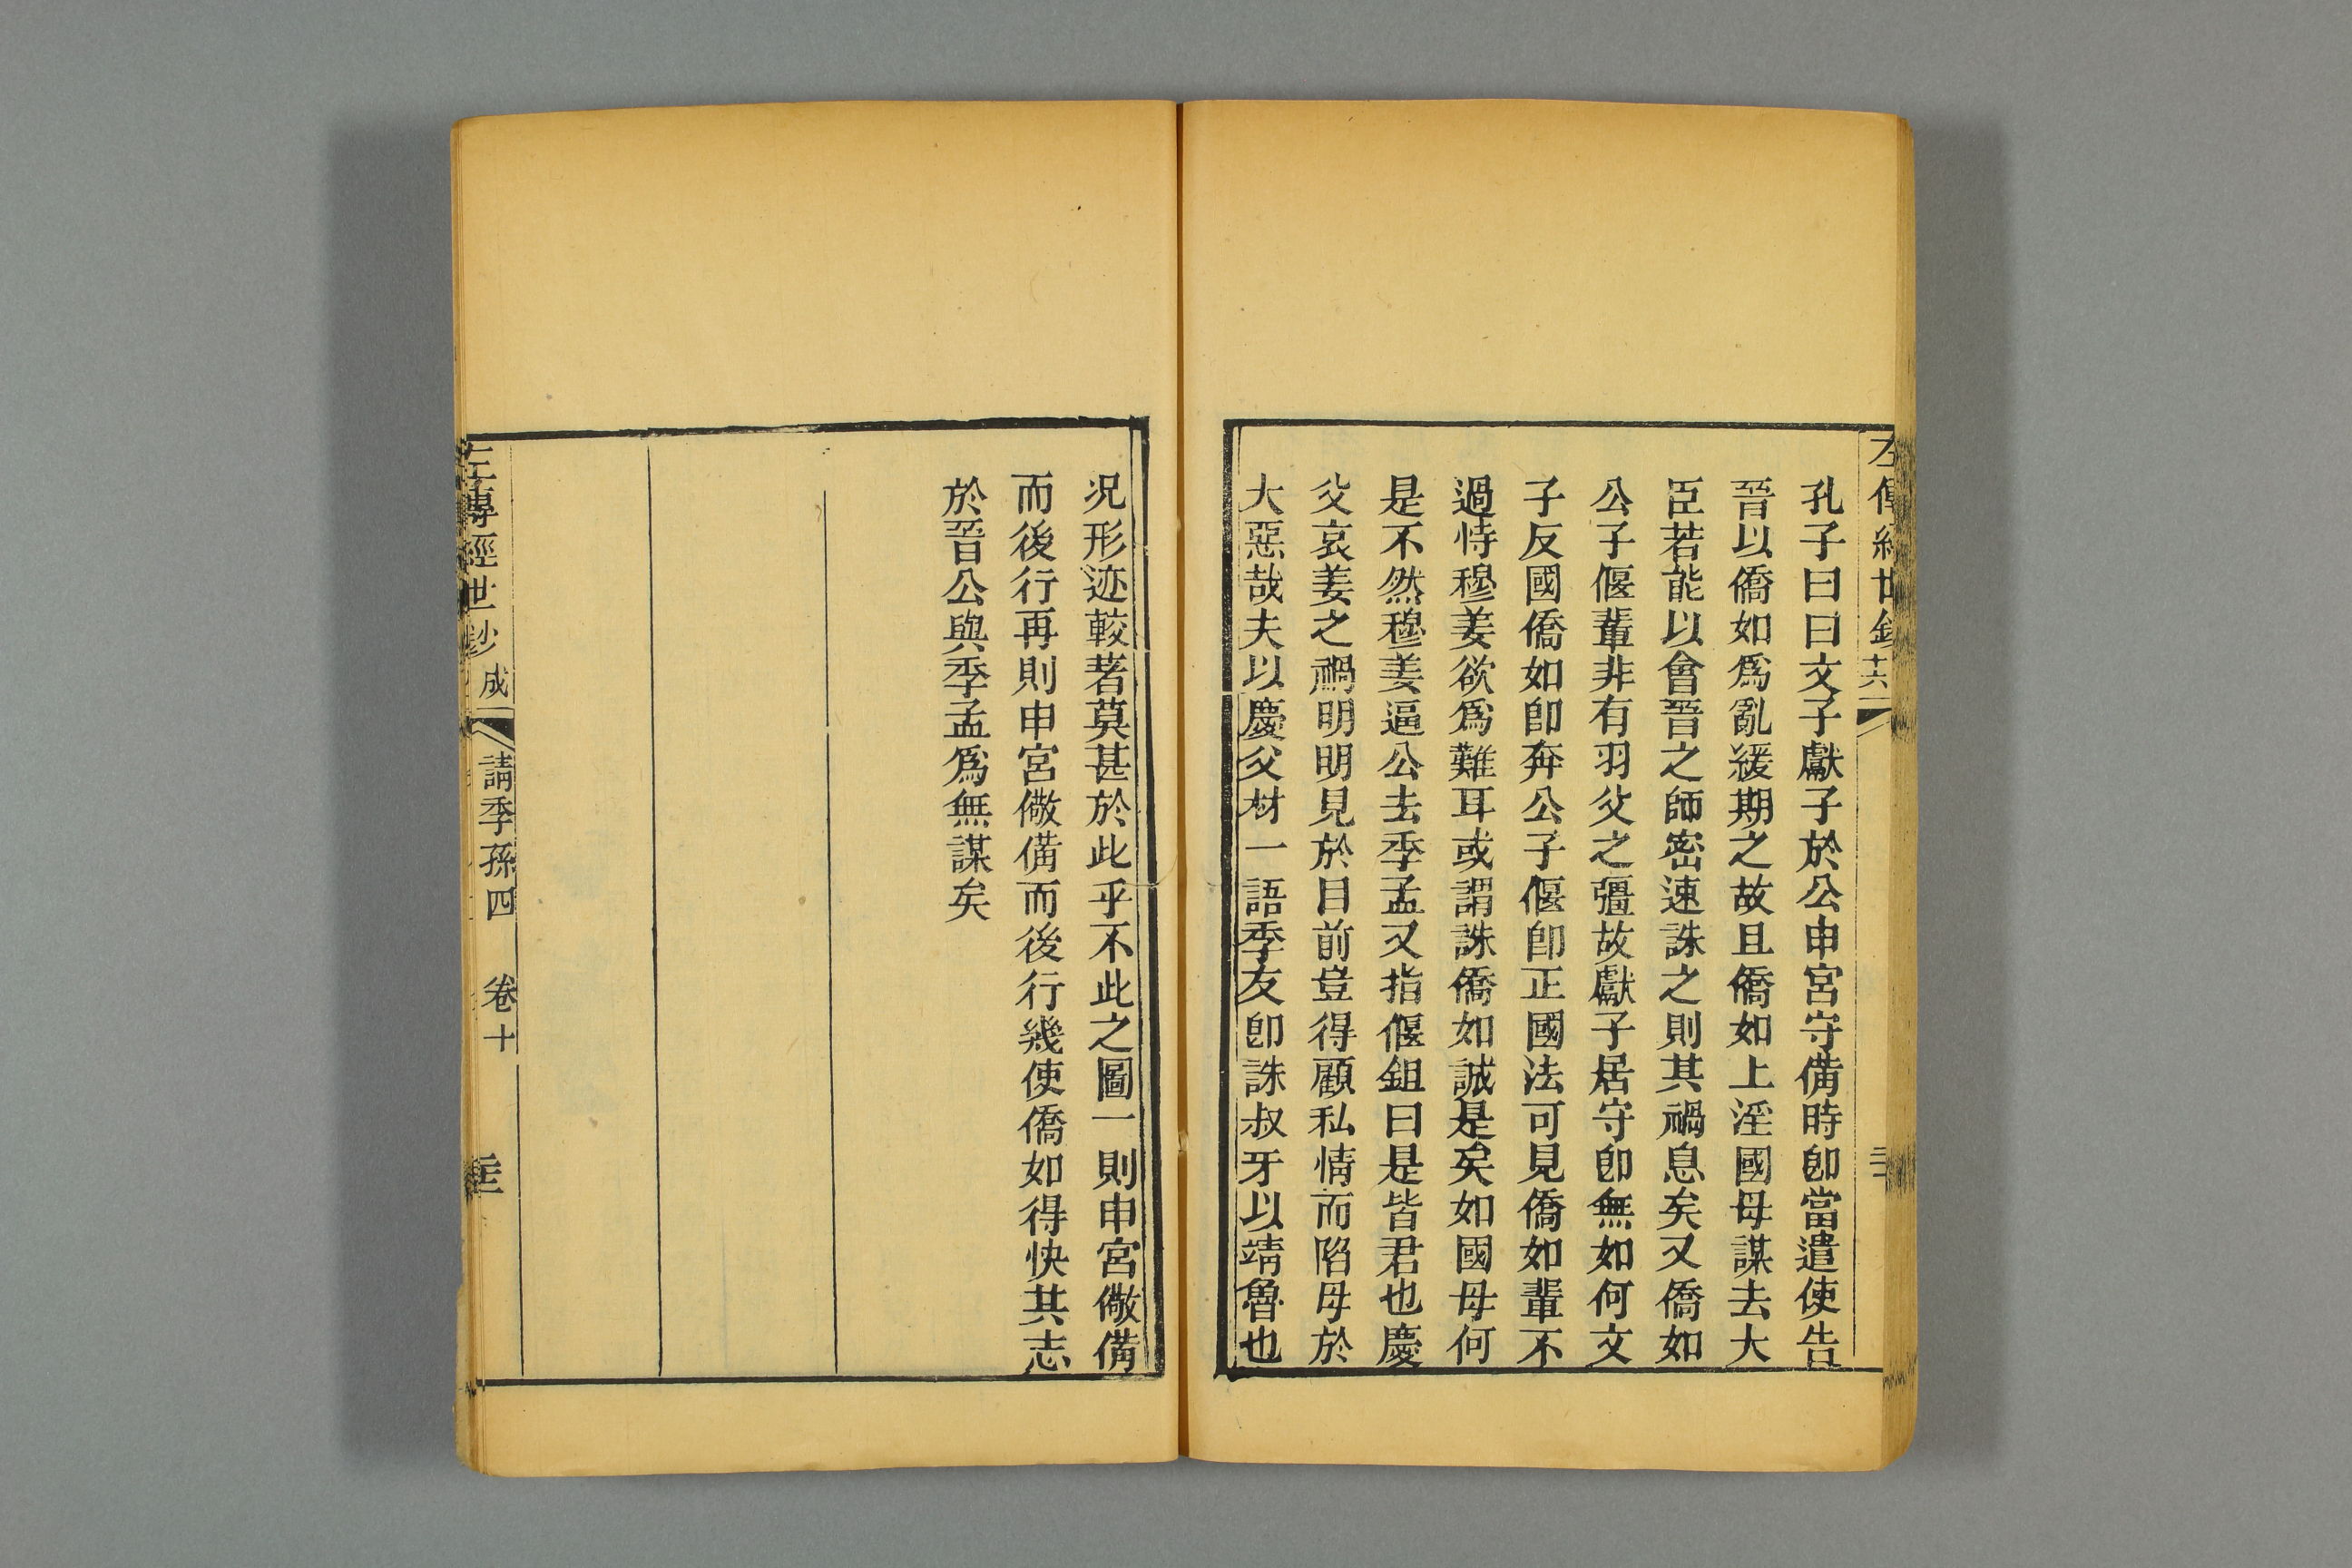 孔子曰曰文子獻子於公申宮守備時卽當遣使告
晉以僑如爲亂緩期之故且僑如上淫國母謀去大
臣若能以會晉之師密速誅之則其禍息矣又僑如
公子偃輩非有羽父之彊故獻子居守卽無如何文
子反國僑如卽奔公子偃卽正國法可見僑如輩不
過恃穆姜欲爲難耳或謂誅僑如誠是矣如國母何
是不然穆姜逼公去季孟又指偃鉏曰是皆君也慶
父哀姜之禍明明見於目前豈得顧私情而陷母於
大惡哉夫以慶父材一語季友卽誅叔牙以靖魯也
况形迹較著莫甚於此乎不此之圖一則申宮儆備
而後行再則申宮儆備而後行幾使僑如得快其志
於晉公與季孟爲無謀矣
左傳經世鈔 成 請季孫四 卷十